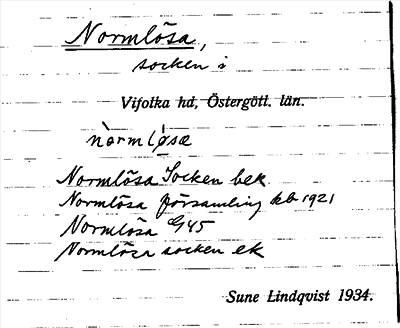 Normlösa,
socken i
Vifolka hd, Östergötl. län.
Normlösa Socken bek
Normlösa församling kb 1921
Normlösa G45
Normlösa socken ek
Sune Lindqvist 1934.